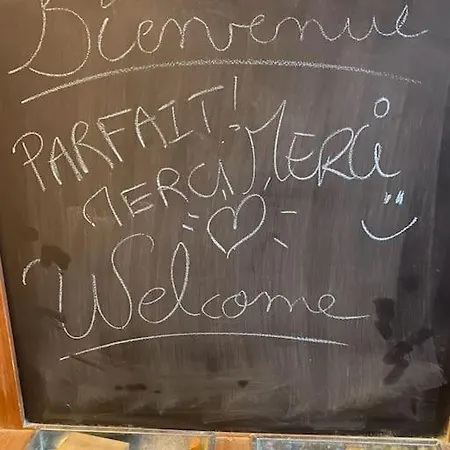 Bienvenue
PARFAIT!
MERCi MERCi
Welcome